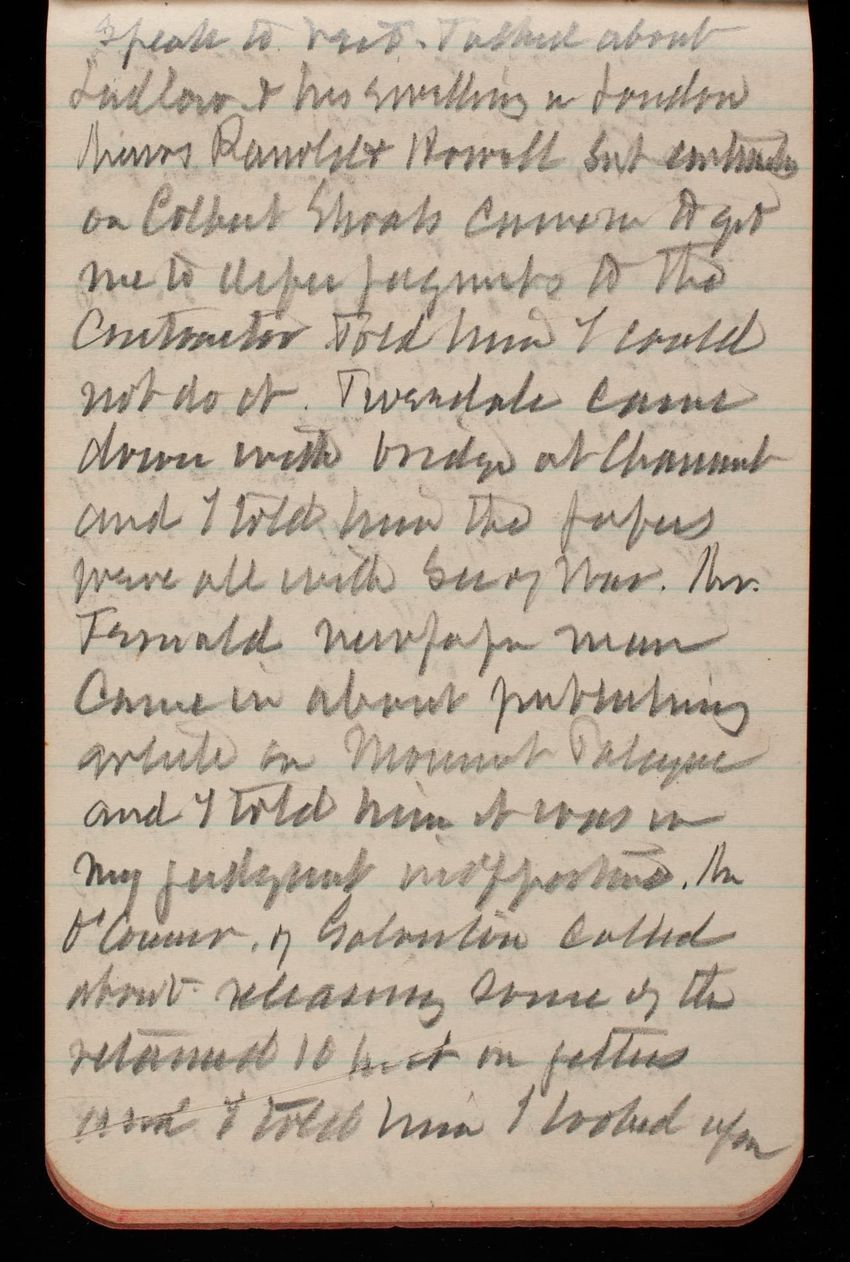 speak to. Talked about
Ludlow & his dwelling in London
Howell but
on Colbert Shoals came in to get
me to defer payments to the
Contractor Told him I could
not do it. Tweedale came
down with bridge at
and I told him the papers
were all with Sec of War. Mr.
Fernald newspaper man
Came in about publishing
article on Mount
and I told him it was in
my judgment inopportune. Mr
O'Connor, of Galveston called
about releasing some of the
retained 10 on jetties
and I told him I looked upon